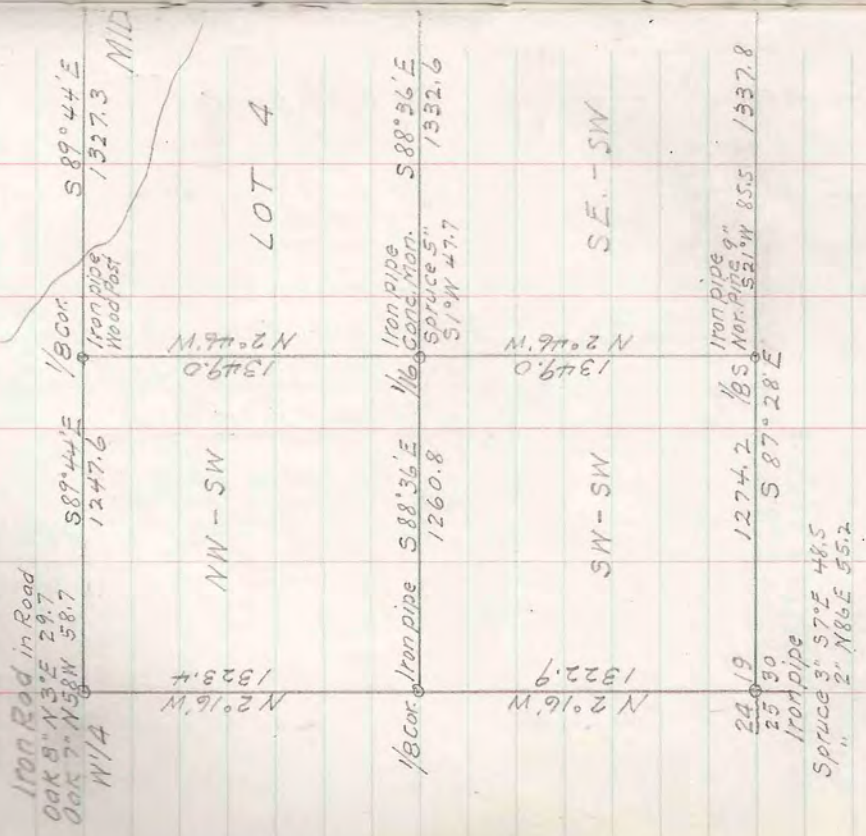 Iron Rod in Road
Oak 8" N3°E 29.7
Oak 7" N58W 58.7
W1/4
S89°44'E
1247.6
1/8 Cor.
Iron pipe
Wood Post
S 89°44'E
1327.3
MID
N 2°16'W
1323.4
NW - SW
N 2°46'W
1349.0
LOT 4
1/8 Cor.
Iron pipe
S 88°36'E
1260.8
1/16
Iron pipe
Conc. Mon.
Spruce 5"
S1°W 47.7
S 88°36'E
1332.6
N 2°16'W
1322.9
SW - SW
N 2°46'W
1349.0
SE. - SW
24 19
25 30
Iron pipe
Spruce 3" S7°E 48.5
" 2" N86E 55.2
1274.2
S 87°28'E
1/8 S
Iron pipe
Nor. Pine 9"
S21°W 85.5
1337.8